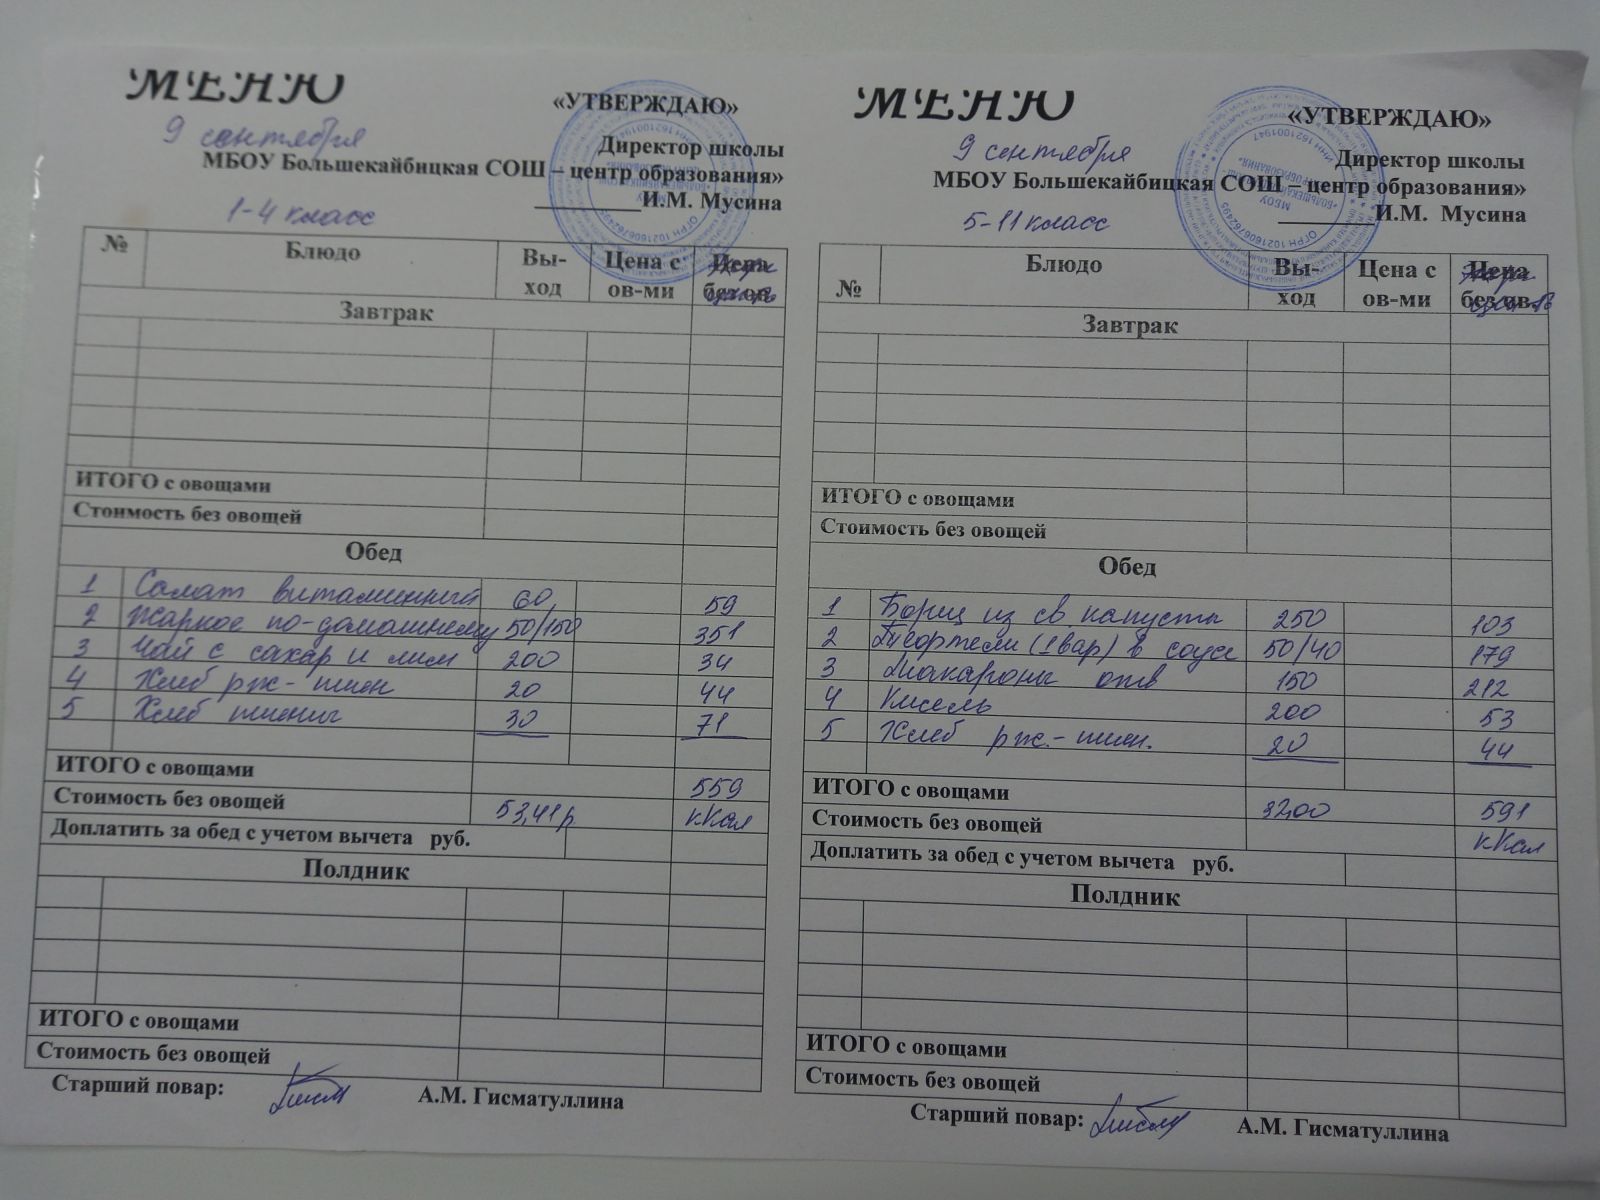 МЕНЮ
9 сентября
«УТВЕРЖДАЮ»
Директор школы
МБОУ Большекайбицкая СОШ – центр образования»
И.М. Мусина
1-4 класс
№ Блюдо Вы-ход Цена с ов-ми Цена без ов.
Завтрак
ИТОГО с овощами
Стоимость без овощей
Обед
1 Салат витаминный 60 59
2 Жаркое по-домашнему 50/150 351
3 Чай с сахар и лим 200 34
4 Хлеб рж-пшен 20 44
5 Хлеб пшенич 30 71
ИТОГО с овощами 559
Стоимость без овощей 53,41р ккал
Доплатить за обед с учетом вычета руб.
Полдник
ИТОГО с овощами
Стоимость без овощей
Старший повар: А.М. Гисматуллина
МЕНЮ
9 сентября
«УТВЕРЖДАЮ»
Директор школы
МБОУ Большекайбицкая СОШ – центр образования»
И.М. Мусина
5-11 класс
№ Блюдо Вы-ход Цена с ов-ми Цена без ов.
Завтрак
ИТОГО с овощами
Стоимость без овощей
Обед
1 Борщ из св. капусты 250 103
2 (1вар) в соусе 50/40 179
3 Макароны отв 150 212
4 Кисель 200 53
5 Хлеб рж.-пшен. 20 44
ИТОГО с овощами 32,00 591
Стоимость без овощей ккал
Доплатить за обед с учетом вычета руб.
Полдник
ИТОГО с овощами
Стоимость без овощей
Старший повар: А.М. Гисматуллина